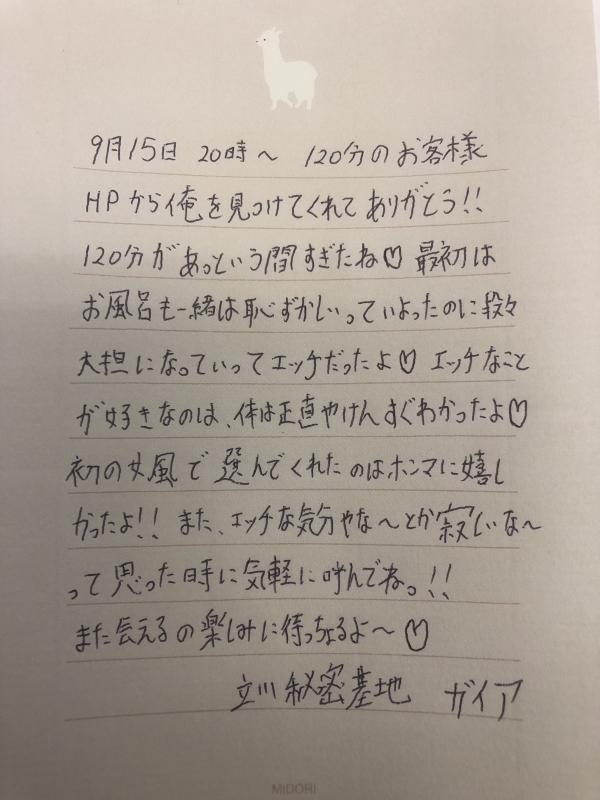 9月15日 20時〜 120分のお客様
HPから俺を見つけてくれてありがとう!!
120分があっという間すぎたね♡ 最初は
お風呂も一緒は恥ずかしいっていよったのに段々
大担になっていってエッチだったよ♡ エッチなこと
が好きなのは、体は正直やけんすぐわかったよ♡
初の女風で選んでくれたのはホンマに嬉し
かったよ!! また、エッチな気分やな〜とか寂しいな〜
って思った時に気軽に呼んでねっ!!
また会えるの楽しみに待っちょるよ〜♡
立川秘密基地 ガイア
MIDORI